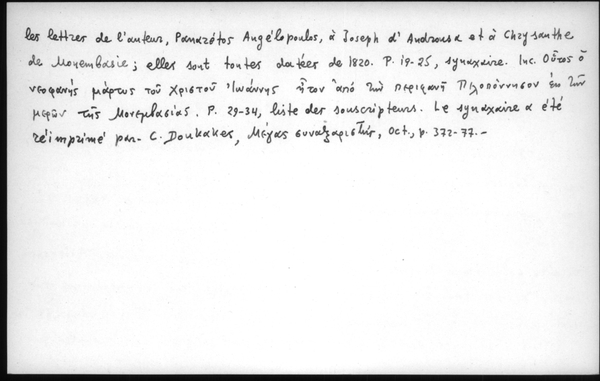 les lettres de l'auteur, Panazótos Angélopoulos, à Joseph d'Androusa et à Chrysanthe
de Monembasie; elles sont toutes datées de 1820. P. 19-25, synaxaire. Inc. Οὗτος ὁ
νεοφανὴς μάρτυς τοῦ Χριστοῦ Ἰωάννης ἦτον ἀπὸ τὴν περιφανῆ Πελοπόννησον ἐκ τῶν
μερῶν τῆς Μονεμβασίας. P. 29-34, liste des souscripteurs. Le synaxaire a été
réimprimé par C. Doukakes, Μέγας συναξαριστής, Oct., p. 372-77.-